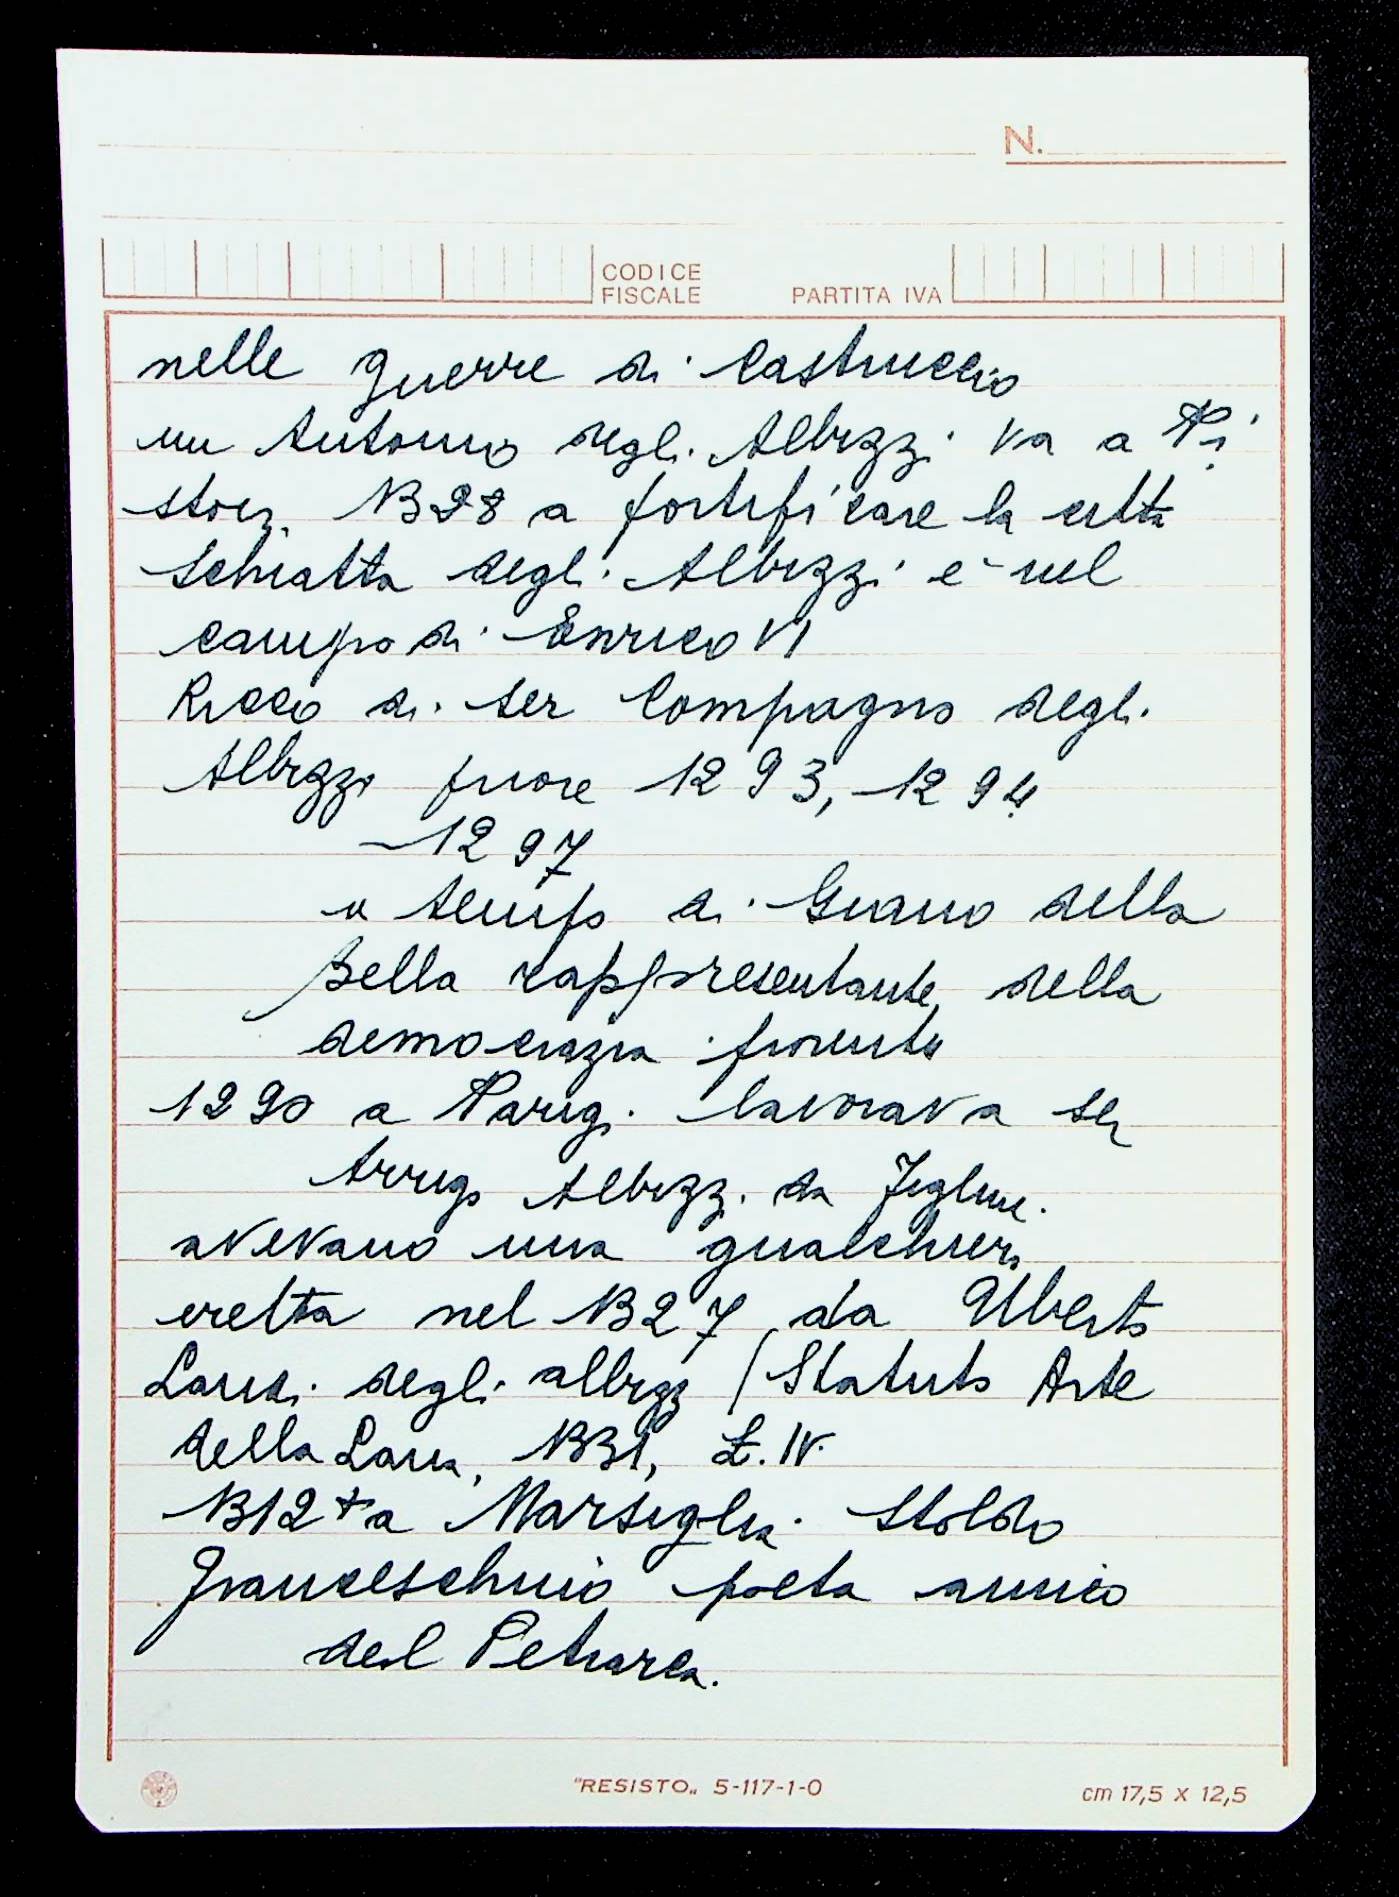 N.
CODICE
FISCALE PARTITA IVA
nelle guerre di Castruccio
un Antonio degli Albizzi va a Pi
stoia 1328 a fortificare la città
Schiatta degli Albizzi è nel
campo di Enrico VI
Ricco di Ser Compagno degli
Albizzi priore 1293, 1294
1297
a tempo di Giano della
Bella rappresentante della
democrazia fiorente
1290 a Parigi lavorava
Arrigo Albizzi da Figline.
avevano una gualchiera
eretta nel 1327 da Uberto
Landi degli albizzi (Statuto Arte
della Lana, 1331, L. IV.
1312 + a Marsiglia. Stoldo
Franceschino poeta amico
del Petrarca.
"RESISTO" 5-117-1-0 cm 17,5 x 12,5